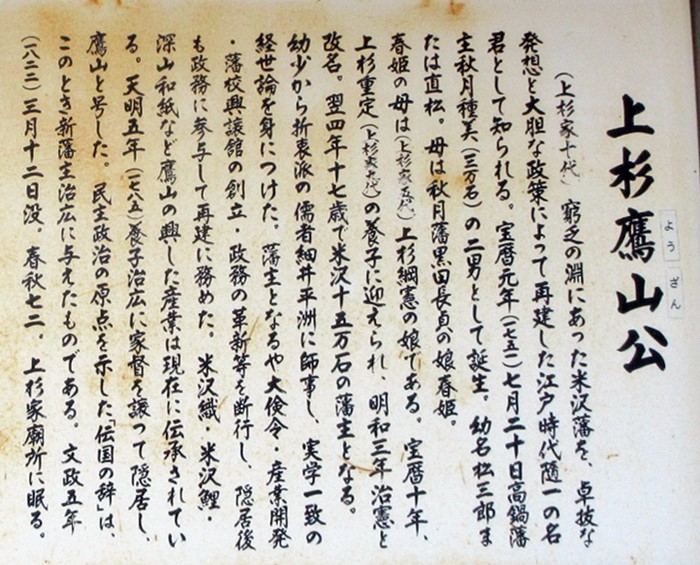 上杉鷹山公
よう
ざん
(上杉家十代) 窮乏の淵にあった米沢藩を、卓抜な
発想と大胆な政策によって再建した江戸時代随一の名
君として知られる。宝暦元年(一七五一)七月二十日高鍋藩
主秋月種美(三万石)の二男として誕生。幼名松三郎ま
たは直松。母は秋月藩黒田長貞の娘春姫。
春姫の母は(上杉家五代)上杉綱憲の娘である。宝暦十年、
上杉重定(上杉家九代)の養子に迎えられ、明和三年治憲と
改名。翌四年十七歳で米沢十五万石の藩主となる。
幼少から折衷派の儒者細井平洲に師事し、実学一致の
経世論を身につけた。藩主となるや大倹令・産業開発
・藩校興譲館の創立・政務の革新等を断行し、隠居後
も政務に参与して再建に務めた。米沢織・米沢鯉・
深山和紙など鷹山の興した産業は現在に伝承されてい
る。天明五年(一七八五)養子治広に家督を譲って隠居し、
鷹山と号した。民主政治の原点を示した「伝国の辞」は、
このとき新藩主治広に与えたものである。文政五年
(一八二二)三月十二日没。春秋七二。上杉家廟所に眠る。